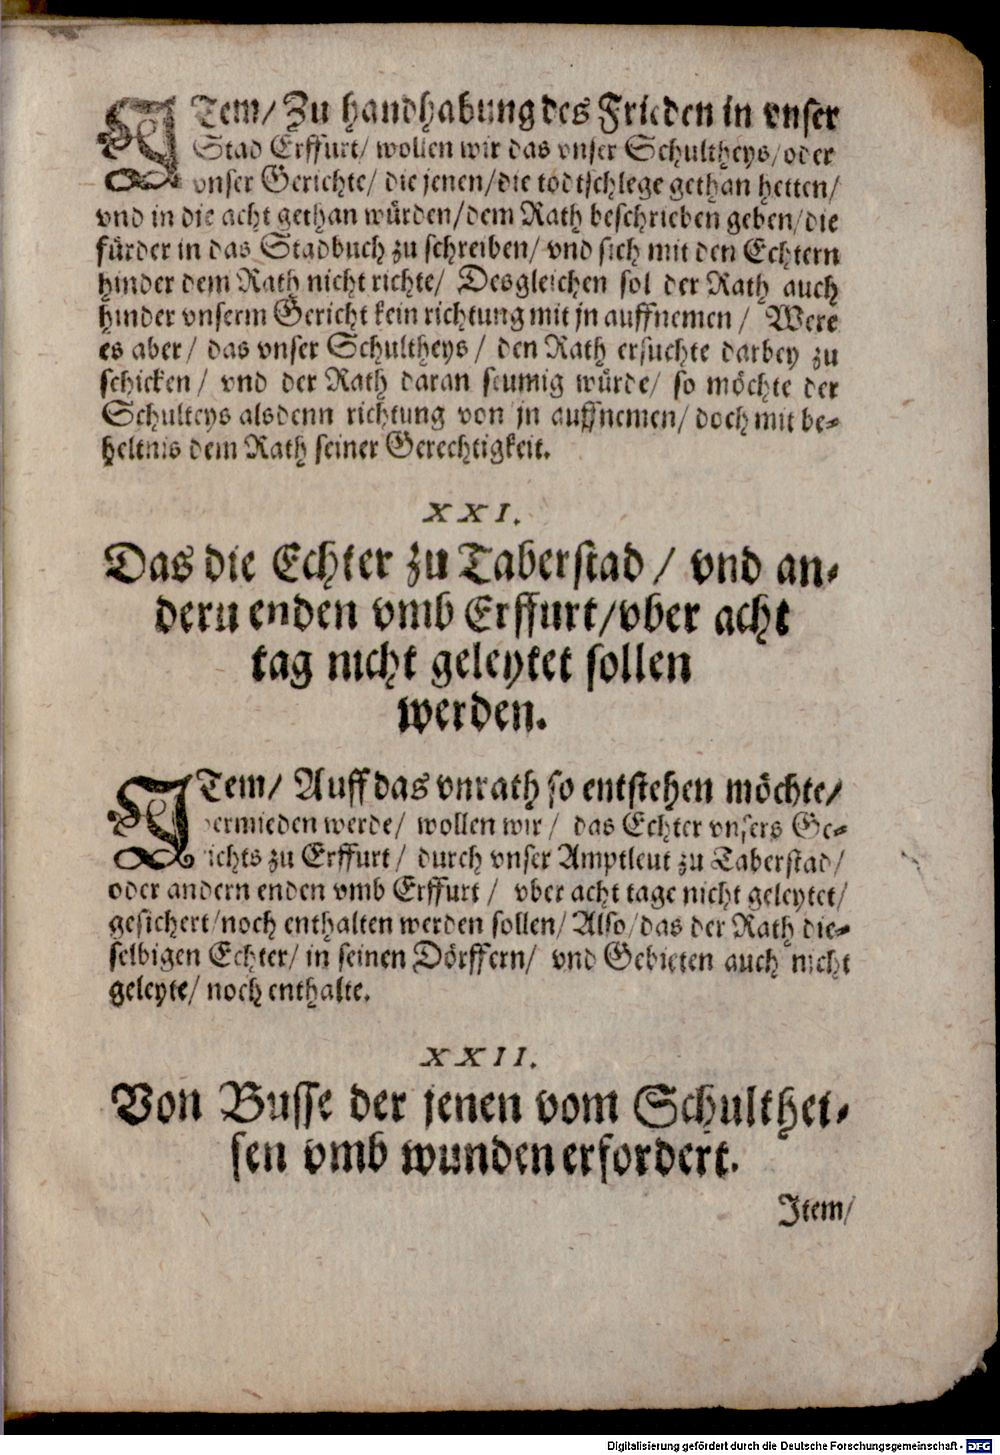 ITem/ Zu handhabung des Frieden in vnser
Stad Erffurt/ wollen wir das vnser Schultheys/ oder
vnser Gerichte/ die jenen/ die todtschlege gethan hetten/
vnd in die acht gethan würden/ dem Rath beschrieben geben/ die
fürder in das Stadbuch zu schreiben/ vnd sich mit den Echtern
hinder dem Rath nicht richte/ Desgleichen sol der Rath auch
hinder vnserm Gericht kein richtung mit jn auffnemen/ Were
es aber/ das vnser Schultheys/ den Rath ersuchte darbey zu
schicken/ vnd der Rath daran seumig würde/ so möchte der
Schulteys alsdenn richtung von jn auffnemen/ doch mit be-
heltnis dem Rath seiner Gerechtigkeit.
XXI.
Das die Echter zu Taberstad/ vnd an-
dern enden vmb Erffurt/ vber acht
tag nicht geleytet sollen
werden.
ITem/ Auff das vnrath so entstehen möchte/
vermieden werde/ wollen wir/ das Echter vnsers Ge-
richts zu Erffurt/ durch vnser Amptleut zu Taberstad/
oder andern enden vmb Erffurt/ vber acht tage nicht geleytet/
gesichert/ noch enthalten werden sollen/ Also/ das der Rath die-
selbigen Echter/ in seinen Dörffern/ vnd Gebieten auch nicht
geleyte/ noch enthalte.
XXII.
Von Busse der jenen vom Schulthei-
sen vmb wunden erfordert.
Item/
Digitalisierung gefördert durch die Deutsche Forschungsgemeinschaft - DFG